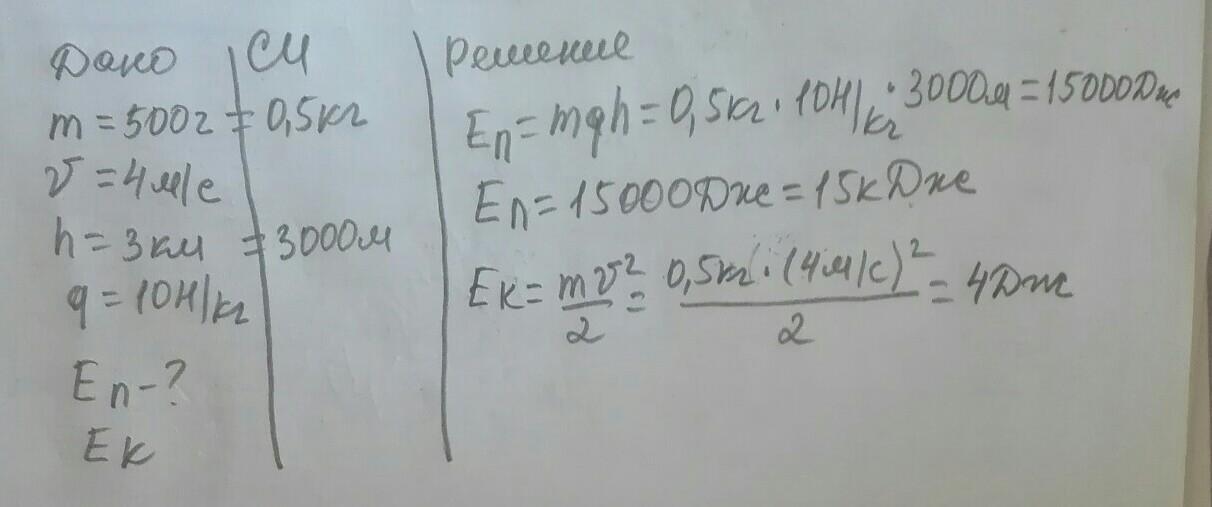 Дано СИ Решение
m = 500г = 0,5кг
v = 4м/с
h = 3км = 3000м
g = 10Н/кг
Eп - ?
Eк
Eп = mgh = 0,5кг · 10Н/кг · 3000м = 15000Дж
Eп = 15000Дж = 15кДж
Eк = mv²/2 = 0,5кг · (4м/с)²/2 = 4Дж